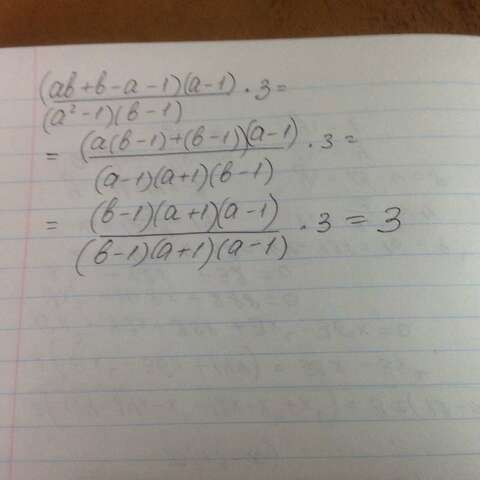 (ab+b-a-1)(a-1)/(a²-1)(b-1) · 3 =
= (a(b-1)+(b-1))(a-1)/(a-1)(a+1)(b-1) · 3 =
= (b-1)(a+1)(a-1)/(b-1)(a+1)(a-1) · 3 = 3